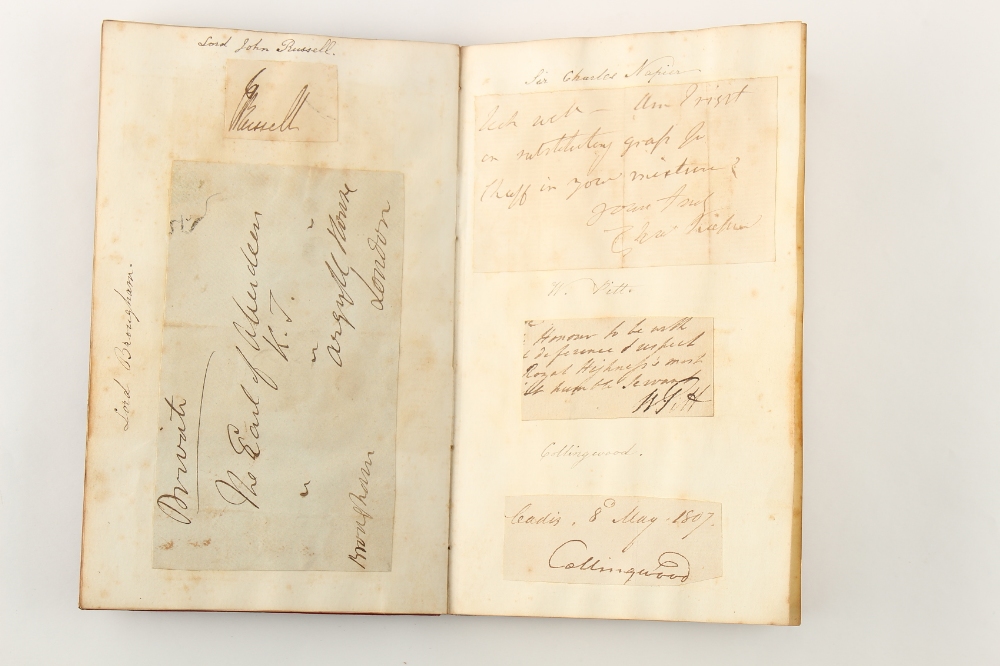 Lord John Russell.
J Russell
Lord Brougham.
Private
The Earl of Aberdeen
K. T.
Argyll House
London
Brougham
Sir Charles Napier
well — Am I right
in substituting graſs for
Chaff in your mixture?
W. Pitt
Honour to be with
deference & respect
Royal Highness's most
humble Servant
W Pitt
Collingwood.
Cadiz, 8 May 1807.
Collingwood